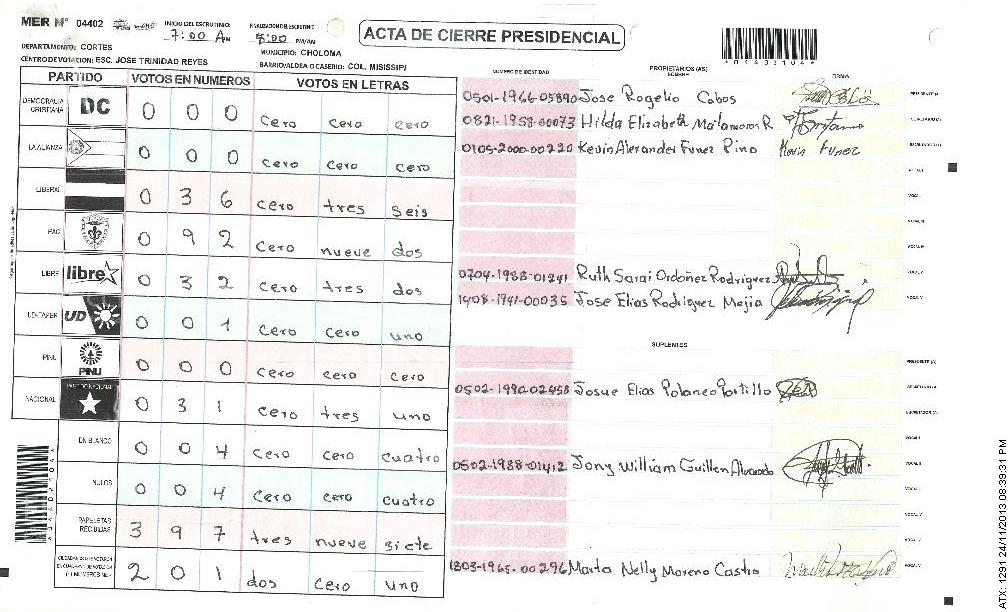 MER Nº 04402
INICIO DEL ESCRUTINIO: 7:00 AM
FINALIZACION DEL ESCRUTINIO 8:00 PM/AM
ACTA DE CIERRE PRESIDENCIAL
DEPARTAMENTO: CORTES
MUNICIPIO: CHOLOMA
CENTRO DE VOTACION: ESC. JOSE TRINIDAD REYES
BARRIO/ALDEA O CASERIO: COL. MISISIPI
PARTIDO VOTOS EN NUMEROS VOTOS EN LETRAS
NUMERO DE IDENTIDAD PROPIETARIOS (AS) NOMBRE FIRMA
DEMOCRACIA CRISTIANA DC 0 0 0 cero cero cero
LA ALIANZA 0 0 0 cero cero cero
LIBERAL 0 3 6 cero tres seis
PAC 0 9 2 cero nueve dos
LIBRE libre 0 3 2 cero tres dos
UD-FAPER UD 0 0 1 cero cero uno
PINU PINU 0 0 0 cero cero cero
NACIONAL PARTIDO NACIONAL 0 3 1 cero tres uno
EN BLANCO 0 0 4 cero cero cuatro
NULOS 0 0 4 cero cero cuatro
PAPELETAS RECIBIDAS 3 9 7 tres nueve siete
2 0 1 dos cero uno
0501-1966-05890 Jose Rogelio Cobos
0821-1958-00073 Hilda Elizabeth Matamoros R
0105-2000-00220 Kevin Alexander Funez Pino Kevin Funez
0704-1988-01241 Ruth Sarai Ordoñez Rodriguez
1408-1941-00035 Jose Elias Rodriguez Mejia
SUPLENTES
0502-1990-02458 Josue Elias Polanco Portillo
0502-1988-01412 Jony William Guillen Alvarado
1803-1965-00296 Marta Nelly Moreno Castro
ATX: 1291 24/11/2013 08:39:31 PM